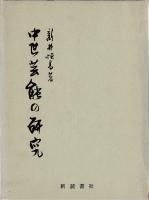 新井恒易著
中世芸能の研究
新読書社